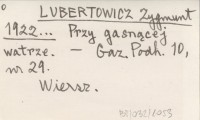 LUBERTOWICZ Zygmunt
1922... Przy gasnącej
watrze. – Gaz. Podh. 10,
nr 29.
Wiersz.